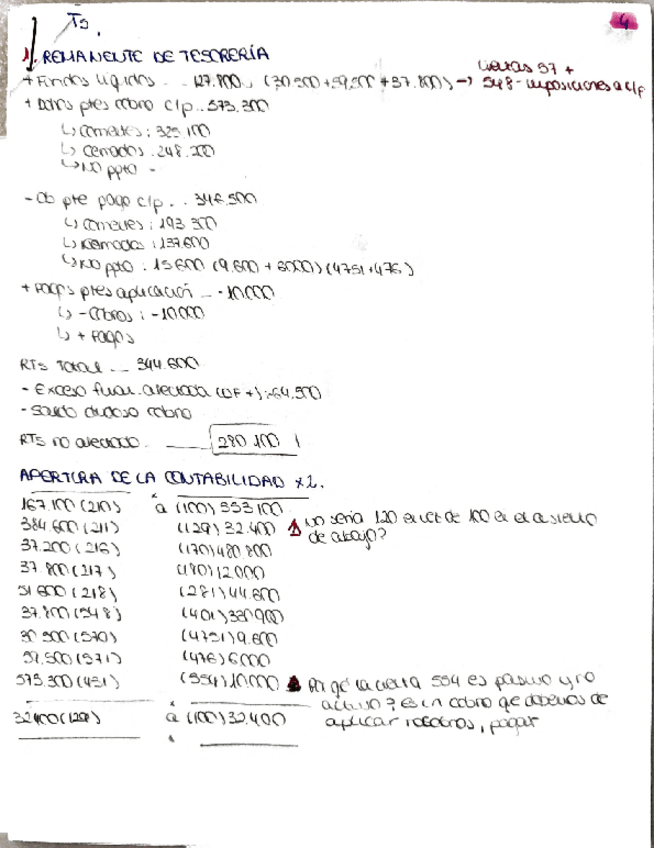 T5.
4
1. REMANENTE DE TESORERÍA
cuentas 57 +
+ Fondos líquidos .. 127.800 (30.500 + 59.500 + 37.800) → 548 - imposiciones a c/p
+ Dchos ptes cobro c/p .. 573.300
↳ corrientes: 325.100
↳ cerrados: 248.200
↳ NO ppto -
- Ob pte pago c/p .. 346.500
↳ corrientes: 193.300
↳ cerrados: 137.600
↳ NO ppto: 15.600 (9.600 + 6000) (4751 + 476)
+ Pagos ptes aplicación .. -10.000
↳ - Cobros: -10.000
↳ + Pagos
RTs Total ... 344.600
- Exceso finan. afectada (DF +): 64.500
- Saldo dudoso cobro
RTs no afectado 280.100
APERTURA DE LA CONTABILIDAD x1.
167.100 (210) a (100) 353.100
384.600 (211) (129) 32.400 1 no sería 120 en vez de 100 en el asiento
de abajo?
37.200 (216) (170) 480.800
37.800 (217) (180) 12.000
51.600 (218) (281) 44.600
37.800 (548) (401) 330.900
30.500 (570) (4751) 9.600
59.500 (571) (476) 6.000
573.300 (431) (554) 10.000 2 Por qé la cuenta 554 es pasivo y no
activo? es un cobro qe debemos de
32.400 (129) a (100) 32.400 aplicar nosotros, pagar